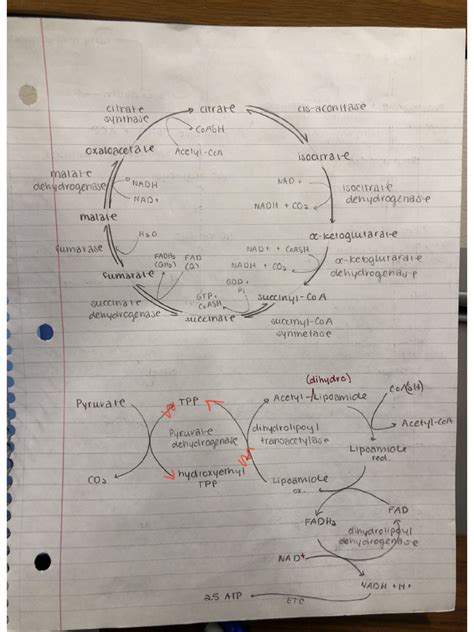 citrate synthase
citrate
cis-aconitase
CoASH
Acetyl-CoA
oxaloacetate
isocitrate
malate dehydrogenase
NADH
NAD+
NAD+
NADH + CO2
isocitrate dehydrogenase
malate
H2O
α-ketoglutarate
fumarase
FADH2 (QH2)
FAD (Q)
NAD+ + CoASH
NADH + CO2
α-ketoglutarate dehydrogenase
fumarate
GDP + Pi
GTP + CoASH
succinyl-CoA
succinate dehydrogenase
succinate
succinyl-CoA synthetase
(dihydro)
Pyruvate
TPP
Acetyl-Lipoamide
CoA(SH)
Pyruvate dehydrogenase
dihydrolipoyl transacetylase
Acetyl-CoA
Lipoamide red.
CO2
hydroxyethyl TPP
Lipoamide ox.
FADH2
FAD
dihydrolipoyl dehydrogenase
NAD+
NADH + H+
2.5 ATP
ETC